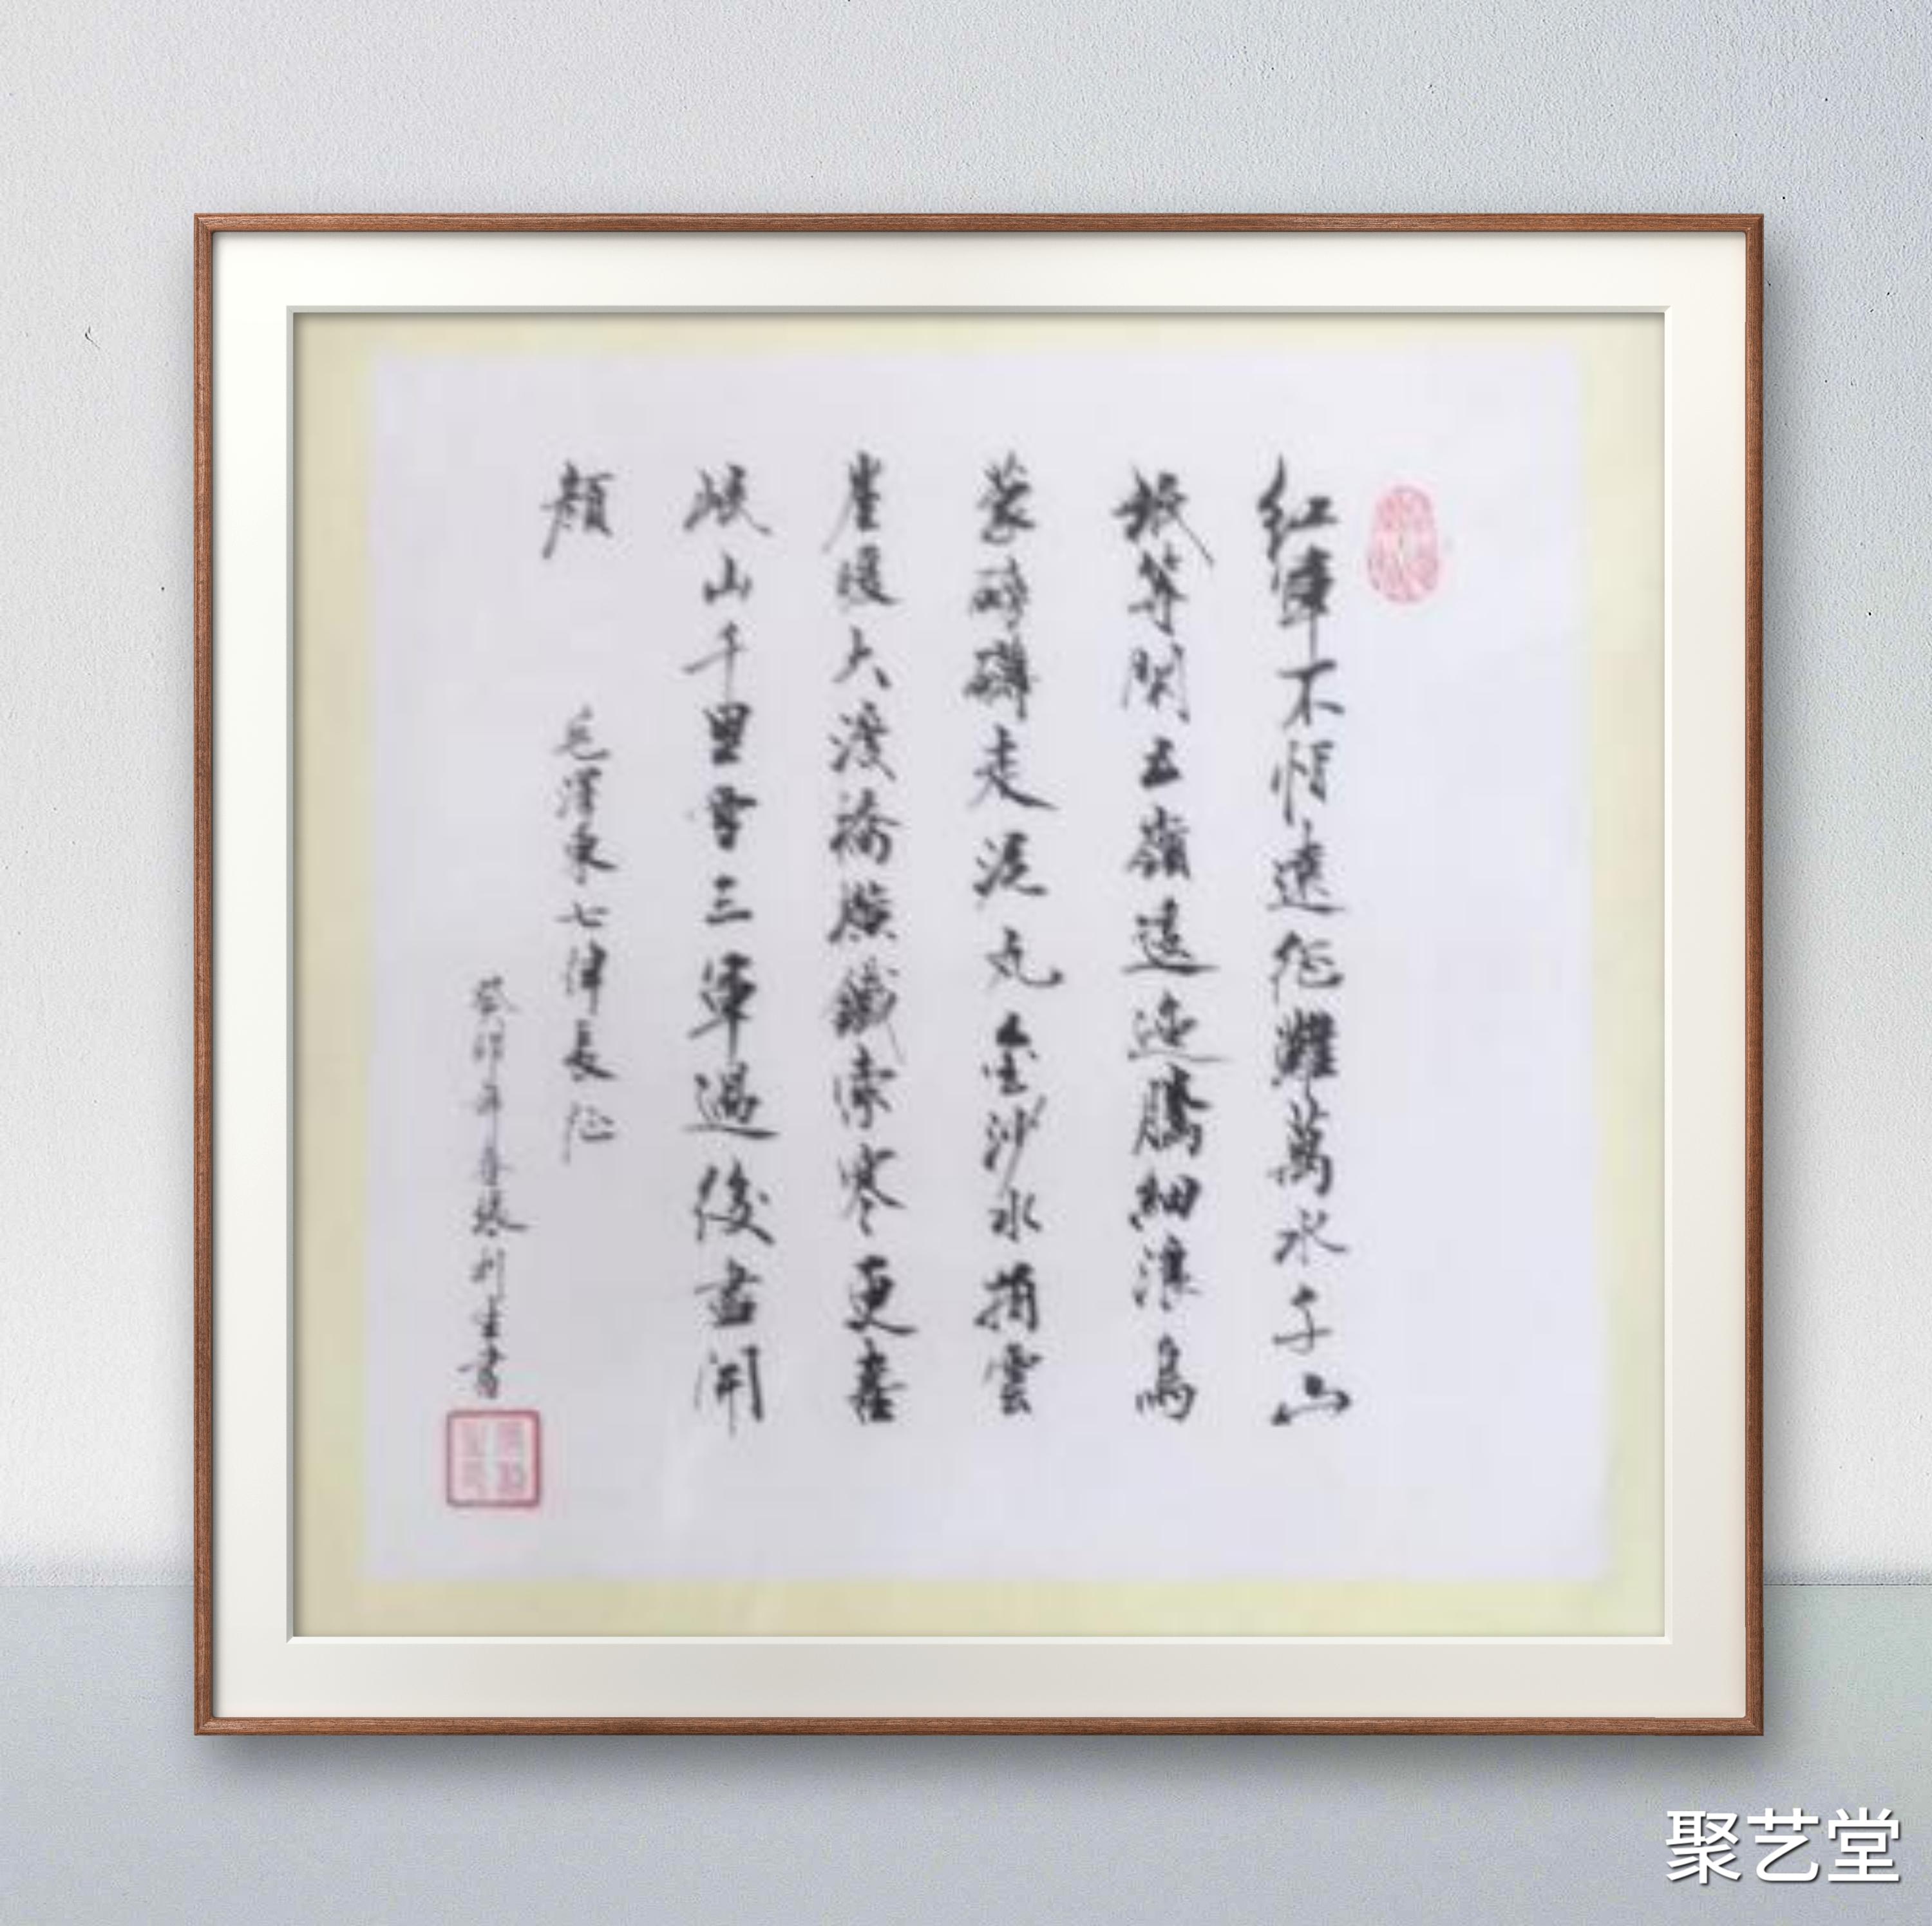 紅軍不怕遠征難萬水千山
祇等閑五嶺逶迤騰細浪烏
蒙磅礴走泥丸金沙水拍雲
崖暖大渡橋橫鐵索寒更喜
岷山千里雪三軍過後盡開
顏
毛澤東七律長征
癸卯年春張利生書
聚艺堂